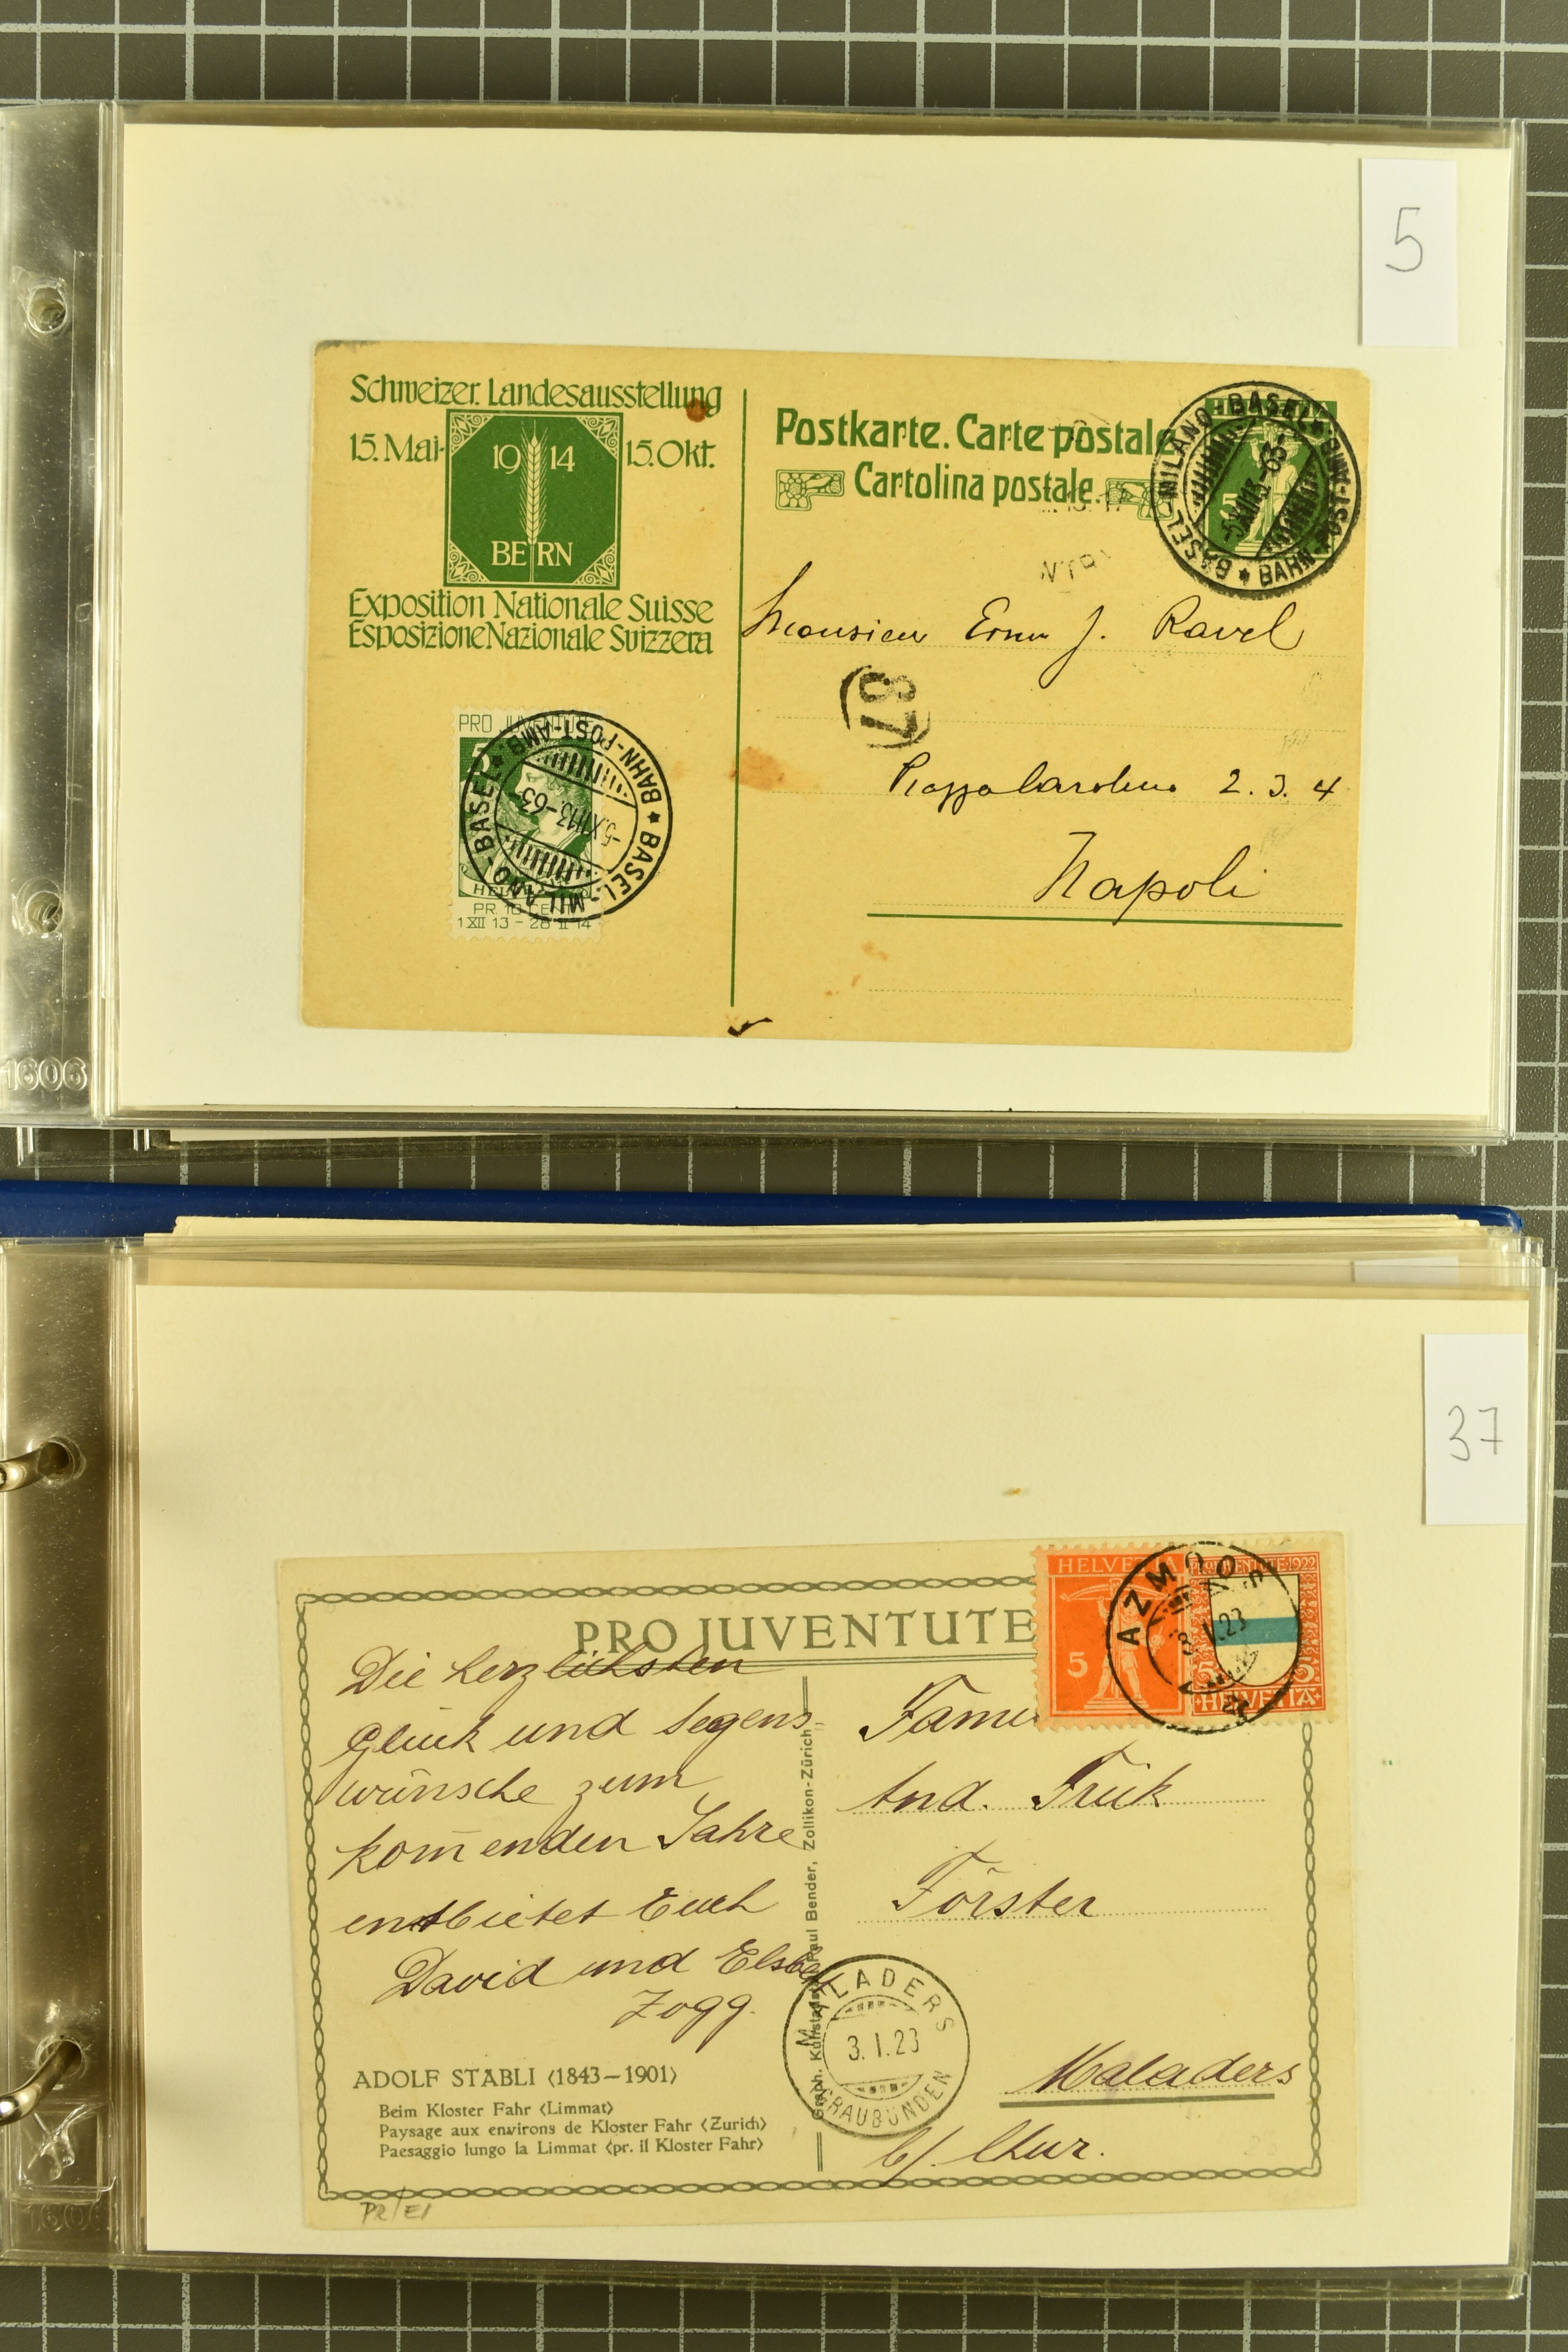 5
Schweizer. Landesausstellung
15. Mai- 1914 15. Okt.
BERN
Exposition Nationale Suisse
Esposizione Nazionale Svizzera
Postkarte. Carte postale
Cartolina postale.
BASEL-MILANO-BASEL * BAHN-POST-AMB *
-5.XII13-63-
5
Monsieur J. Ravel
87
2. 3. 4
Napoli
PRO JUVENTUTE
5
BASEL-MILANO-BASEL * BAHN-POST-AMB *
-5.XII13-63-
HELVETIA
PR. 10 CENT.
1 XII 13 - 28 II 14
1606
37
PRO JUVENTUTE
HELVETIA
5
PRO JUVENTUTE 1922
5 5
HELVETIA
AZMOOS
3.I.23
Die herzlichsten
Glück und Segens
wünsche zum
kom̄enden Jahre
entbietet Euch
David und Elsbeth
Zogg.
And. Trük
Förster
Maladers
b/. Chur.
MALADERS
3.I.23
(GRAUBÜNDEN)
Paul Bender, Zollikon-Zürich
ADOLF STÄBLI (1843–1901)
Beim Kloster Fahr (Limmat)
Paysage aux environs de Kloster Fahr (Zurich)
Paesaggio lungo la Limmat (pr. il Kloster Fahr)
PR/E1
1606